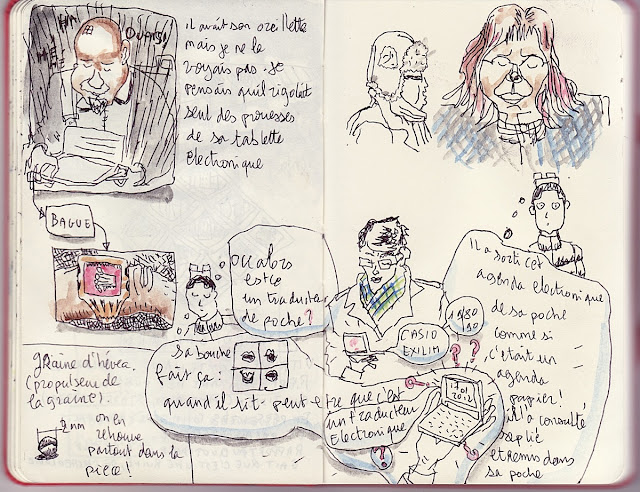 HA
HE
OUAIS!
il avait son oreillette
mais je ne la
voyais pas. Je
pensais qu'il rigolait
seul des prouesses
de sa tablette
electronique
BAGUE
ou alors
est ce
un traducteur
de poche?
sa bouche
fait ça:
quand il lit. peut etre que c'est
un traducteur
Electronique
?
graine d'hévéa
(propulseur de
la graine).
2 mm on en
retrouve
partout dans la
pièce!
Il a sorti cet
agenda electronique
de sa poche
comme si
c'était un
agenda
papier!
il l'a consulté
replié
et remis dans
sa poche
1980
90
CASIO
EXILIM
? ?
17.01
2012